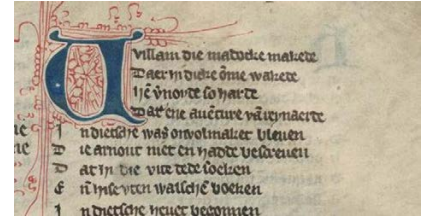 Willam die madocke makede
Daer hi dicke ōme wakede
Hē v̄noyde so harde
Dat ene auēture vā reynaerde
In dietsche was onvolmaket bleuen
Die arnout niet en hadde bescreuen
Dat hi die vite dede soeken
En̄ hise vten walschē boeken
In dietsche heuet begonnen